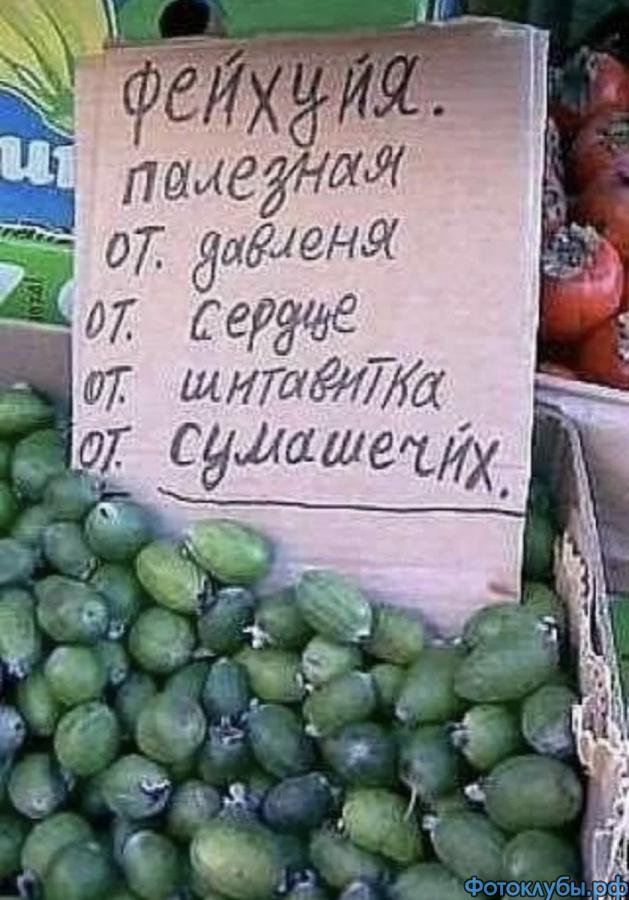 ФЕЙХУЙЯ.
палезная
от. давленя
от. Сердце
от. шитавитка
от. Сумашечйх.
Фотоклубы.рф